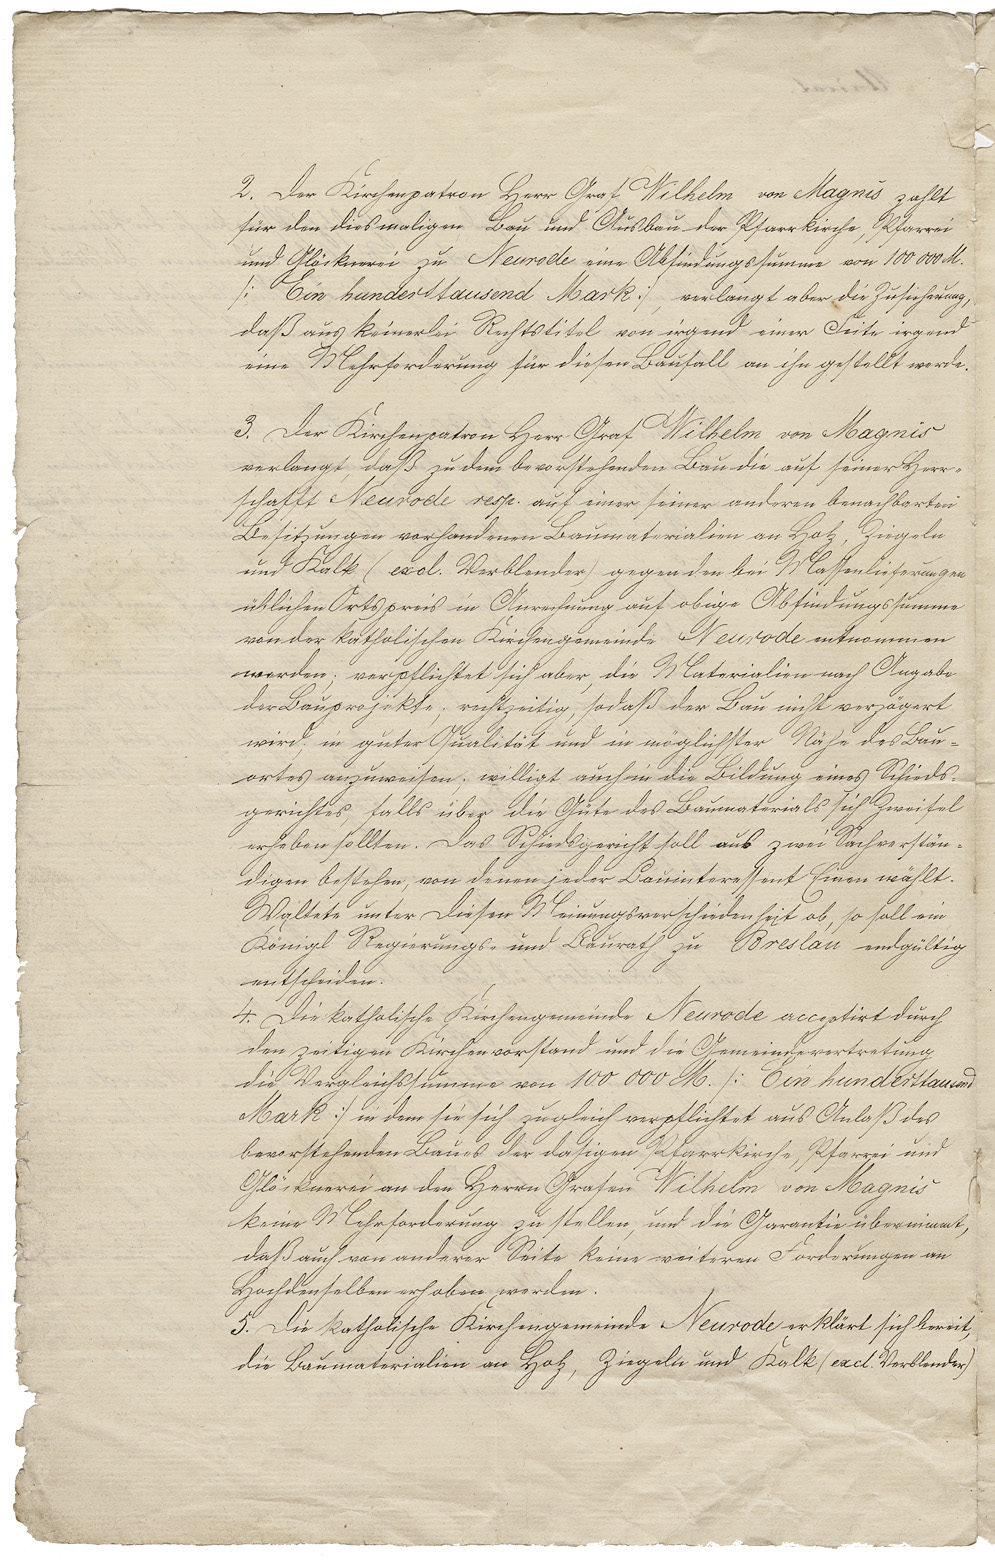 2. Der Kirchenpatron Herr Graf Wilhelm von Magnis zahlt
für den diesmaligen Bau und Ausbau der Pfarrkirche, Pfarrei
und Glöcknerei zu Neurode eine Abfindungssumme von 100 000 M.
/: Ein hunderttausend Mark :/, verlangt aber die Zusicherung,
daß aus keinerlei Rechtstitel von irgend einer Seite irgend
eine Mehrforderung für diesen Baufall an ihn gestellt werde.
3. Der Kirchenpatron Herr Graf Wilhelm von Magnis
verlangt, daß zu dem bevorstehenden Bau die auf seiner Herr-
schafft Neurode resp. auf einer seiner anderen benachbarten
Besitzungen vorhandenen Baumaterialien an Holz, Ziegeln
und Kalk (excl. Verblender) gegen den bei Massenlieferungen
üblichen Ortspreis in Anrechnung auf obige Abfindungssumme
von der katholischen Kirchengemeinde Neurode entnommen
werden; verpflichtet sich aber, die Materialien nach Angabe
der Bauprojekte, rechtzeitig, sodaß der Bau nicht verzögert
wird, in guter Qualität und in möglichster Nähe des Bau-
ortes anzuweisen; willigt auch in die Bildung eines Schieds-
gerichtes, falls über die Güte des Baumaterials sich Zweifel
erheben sollten. Das Schiedsgericht soll aus zwei Sachverstän-
digen bestehen, von denen jeder Bauinteressent Einen wählt.
Waltete unter Diesen Meinungsverschiedenheit ob, so soll ein
Königl Regierungs- und Baurath zu Breslau endgültig
entscheiden.
4. Die katholische Kirchengemeinde Neurode acceptirt durch
den zeitigen Kirchenvorstand und die Gemeindevertretung
die Vergleichssumme von 100 000 M. /: Ein hunderttausend
Mark :/ in dem sie sich zugleich verpflichtet aus Anlaß des
bevorstehenden Baues der dasigen Pfarrkirche, Pfarrei und
Glöcknerei an den Herrn Grafen Wilhelm von Magnis
keine Mehrforderung zu stellen, und die Garantie übernimmt,
daß auch von anderer Seite keine weiteren Forderungen an
Hochdenselben erhoben werden.
5. Die katholische Kirchengemeinde Neurode erklärt sich bereit,
die Baumaterialien an Holz, Ziegeln und Kalk (excl. Verblender)